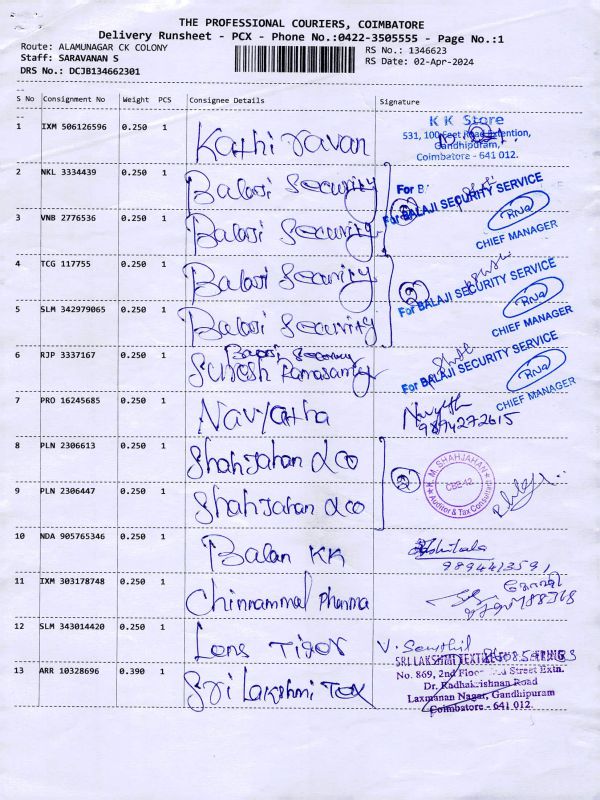 THE PROFESSIONAL COURIERS, COIMBATORE
Delivery Runsheet - PCX - Phone No.:0422-3505555 - Page No.:1
Route: ALAMUNAGAR CK COLONY
RS No.: 1346623
Staff: SARAVANAN S
RS Date: 02-Apr-2024
DRS No.: DCJB134662301
S No Consignment No Weight PCS Consignee Details Signature
1 IXM 506126596 0.250 1 Kathiravan
K K Store
531, 100 Feet Road Extention,
Gandhipuram,
Coimbatore - 641 012.
2 NKL 3334439 0.250 1 Balaji Security
For BALAJI SECURITY SERVICE
CHIEF MANAGER
3 VNB 2776536 0.250 1 Balaji Security
4 TCG 117755 0.250 1 Balaji Security
2
For BALAJI SECURITY SERVICE
CHIEF MANAGER
5 SLM 342979065 0.250 1 Balaji Security
For BALAJI SECURITY SERVICE
CHIEF MANAGER
Balaji Security
6 RJP 3337167 0.250 1 Suresh Ramasamy
7 PRO 16245685 0.250 1 Navyatha
9894272615
8 PLN 2306613 0.250 1 Shahjahan & co
2
M. SHAHJAHAN
CBE-12
Auditor & Tax Consultant
9 PLN 2306447 0.250 1 Shahjahan & co
10 NDA 905765346 0.250 1 Balan KK
9894413591
11 IXM 303178748 0.250 1 Chinnammal Pharma
12 SLM 343014420 0.250 1 Lens Tiger
V. Senthil
13 ARR 10328696 0.390 1 Sri Lakshmi Tex
SRI LAKSHMI TEXTILE
No. 869, 2nd Floor, Street Extn.
Dr. Radhakrishnan Road
Laxmanan Nagar, Gandhipuram
Coimbatore - 641 012.